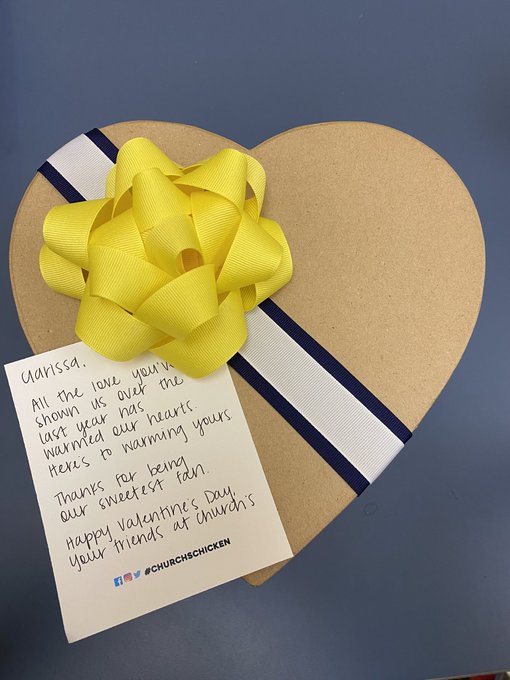 Clarissa,
All the love you've
shown us over the
last year has
warmed our hearts.
Here's to warming yours
Thanks for being
our sweetest fan.
Happy Valentine's Day,
your friends at Church's
#CHURCHSCHICKEN